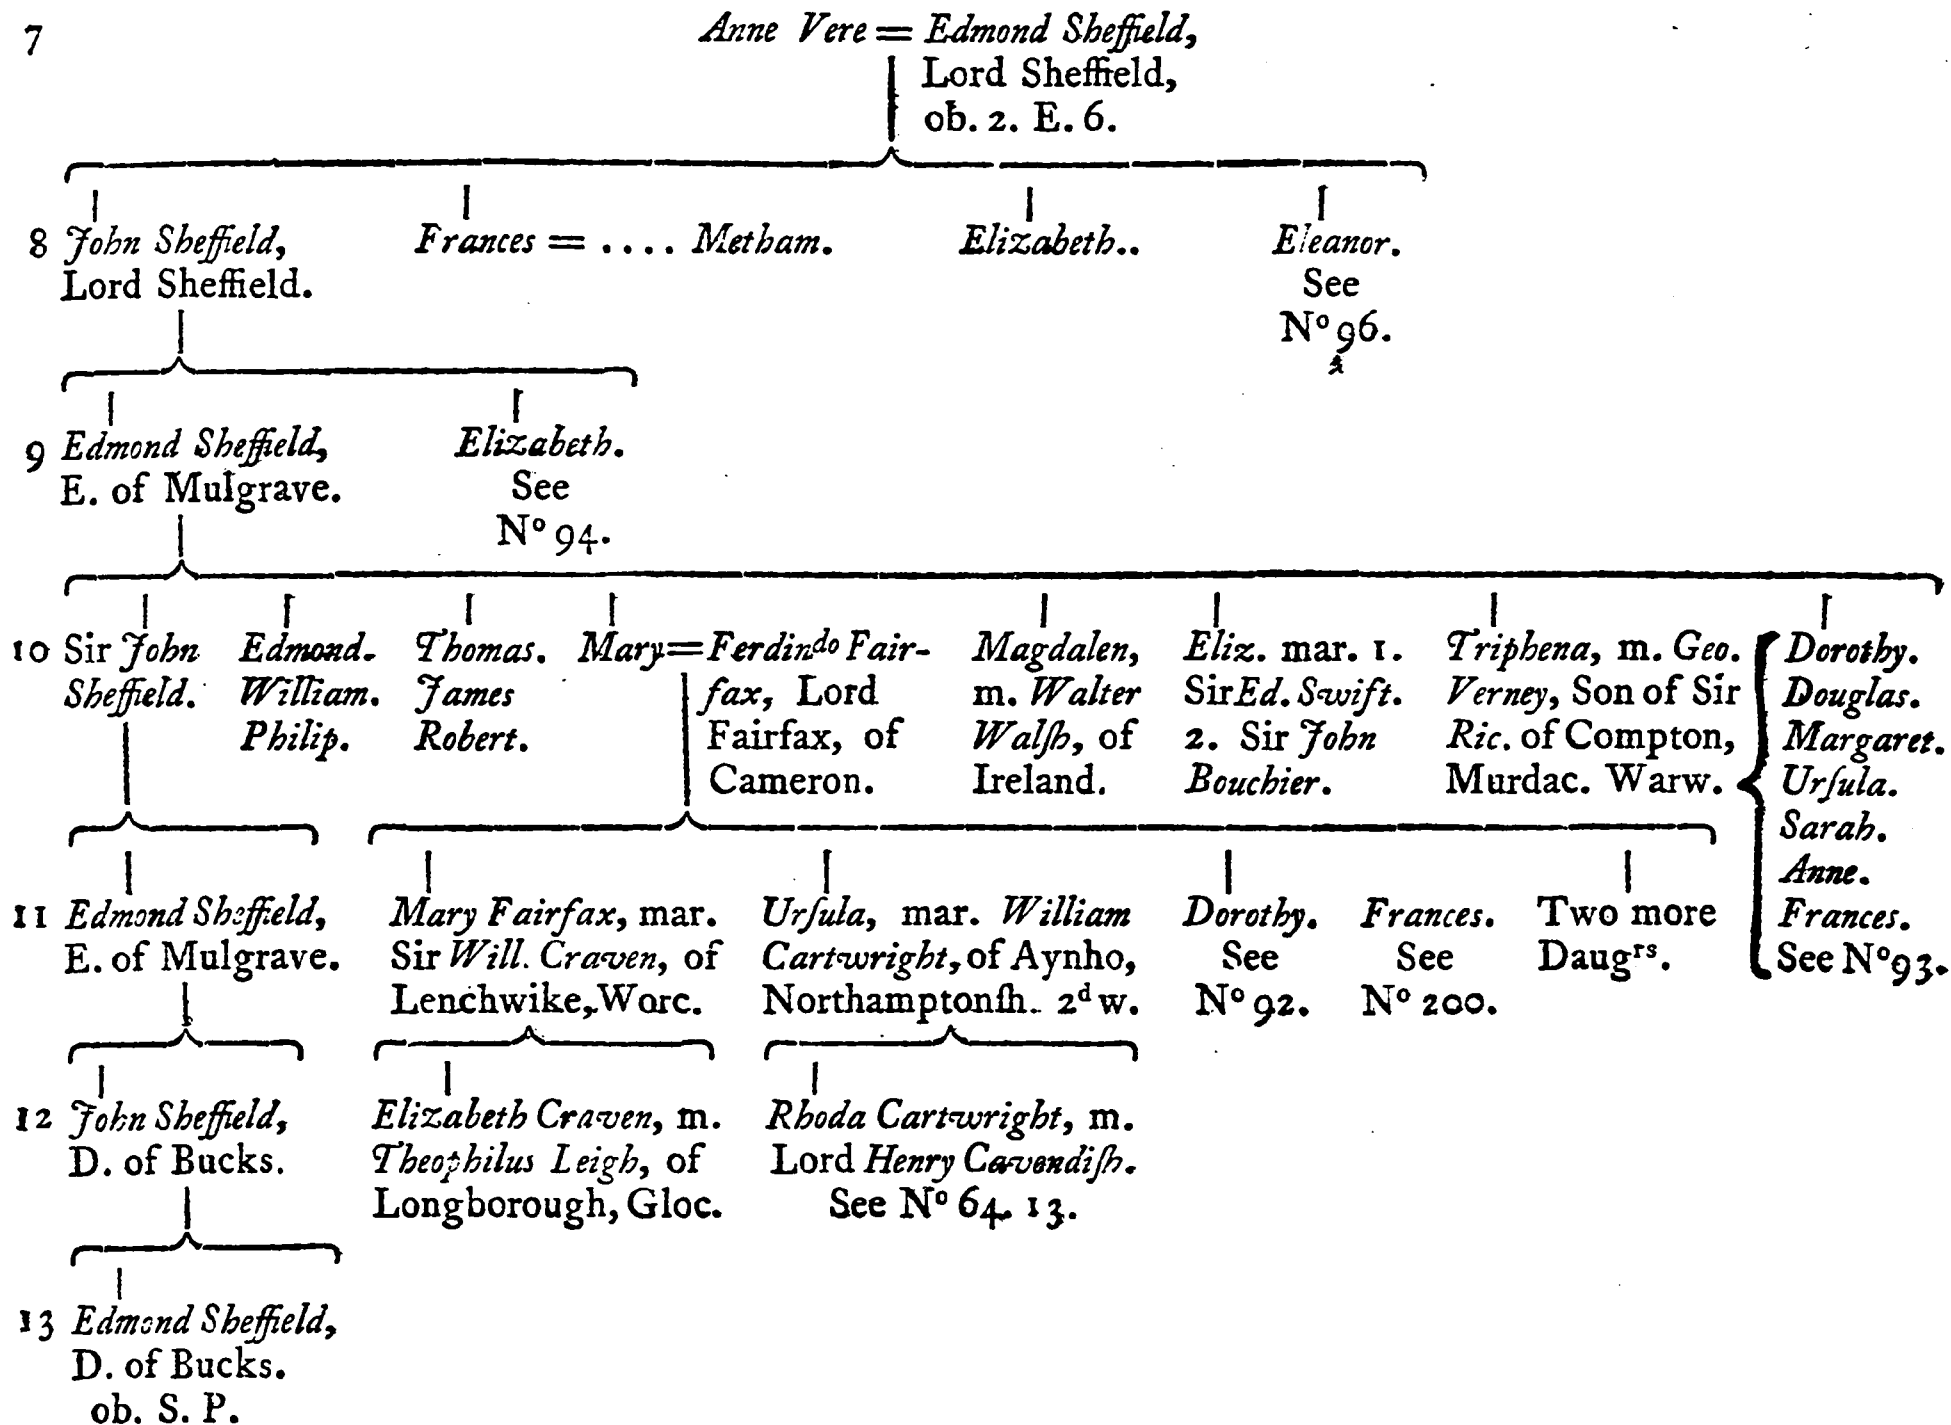 7
Anne Vere = Edmond Sheffield,
Lord Sheffield,
ob. 2. E. 6.
8 John Sheffield,
Lord Sheffield.
Frances = .... Metham.
Elizabeth..
Eleanor.
See
Nº 96.
9 Edmond Sheffield,
E. of Mulgrave.
Elizabeth.
See
Nº 94.
10 Sir John
Sheffield.
Edmond.
William.
Philip.
Thomas.
James
Robert.
Mary = Ferdinᵈᵒ Fair-
fax, Lord
Fairfax, of
Cameron.
Magdalen,
m. Walter
Walſh, of
Ireland.
Eliz. mar. 1.
Sir Ed. Swift.
2. Sir John
Bouchier.
Triphena, m. Geo.
Verney, Son of Sir
Ric. of Compton,
Murdac. Warw.
Dorothy.
Douglas.
Margaret.
Urſula.
Sarah.
Anne.
Frances.
See Nº 93.
11 Edmond Sheffield,
E. of Mulgrave.
Mary Fairfax, mar.
Sir Will. Craven, of
Lenchwike, Worc.
Urſula, mar. William
Cartwright, of Aynho,
Northamptonſh. 2ᵈ w.
Dorothy.
See
Nº 92.
Frances.
See
Nº 200.
Two more
Daugʳˢ.
12 John Sheffield,
D. of Bucks.
Elizabeth Craven, m.
Theophilus Leigh, of
Longborough, Gloc.
Rhoda Cartwright, m.
Lord Henry Cavendiſh.
See Nº 64. 13.
13 Edmond Sheffield,
D. of Bucks.
ob. S. P.